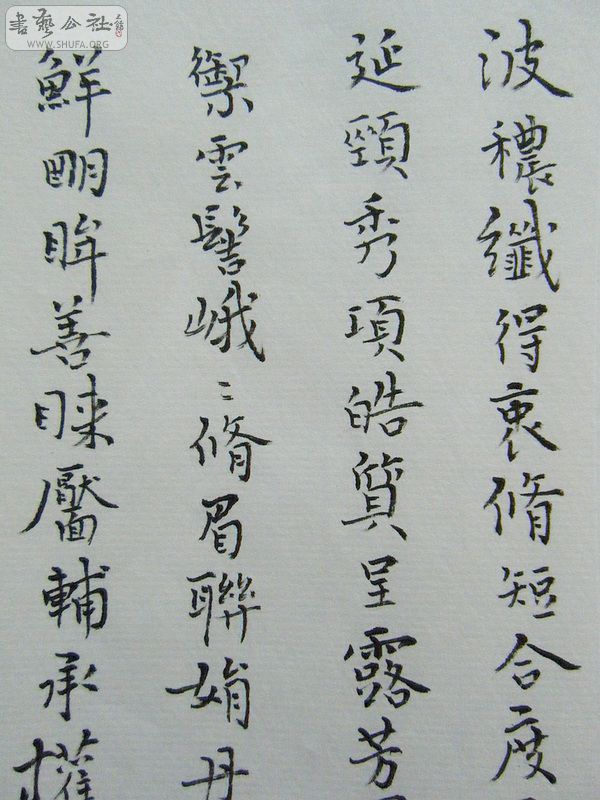 書藝公社
WWW.SHUFA.ORG
波穠纖得衷脩短合度
延頸秀項皓質呈露芳
禦雲髻峨〻脩眉聯娟丹
鮮明眸善睞靨輔承權